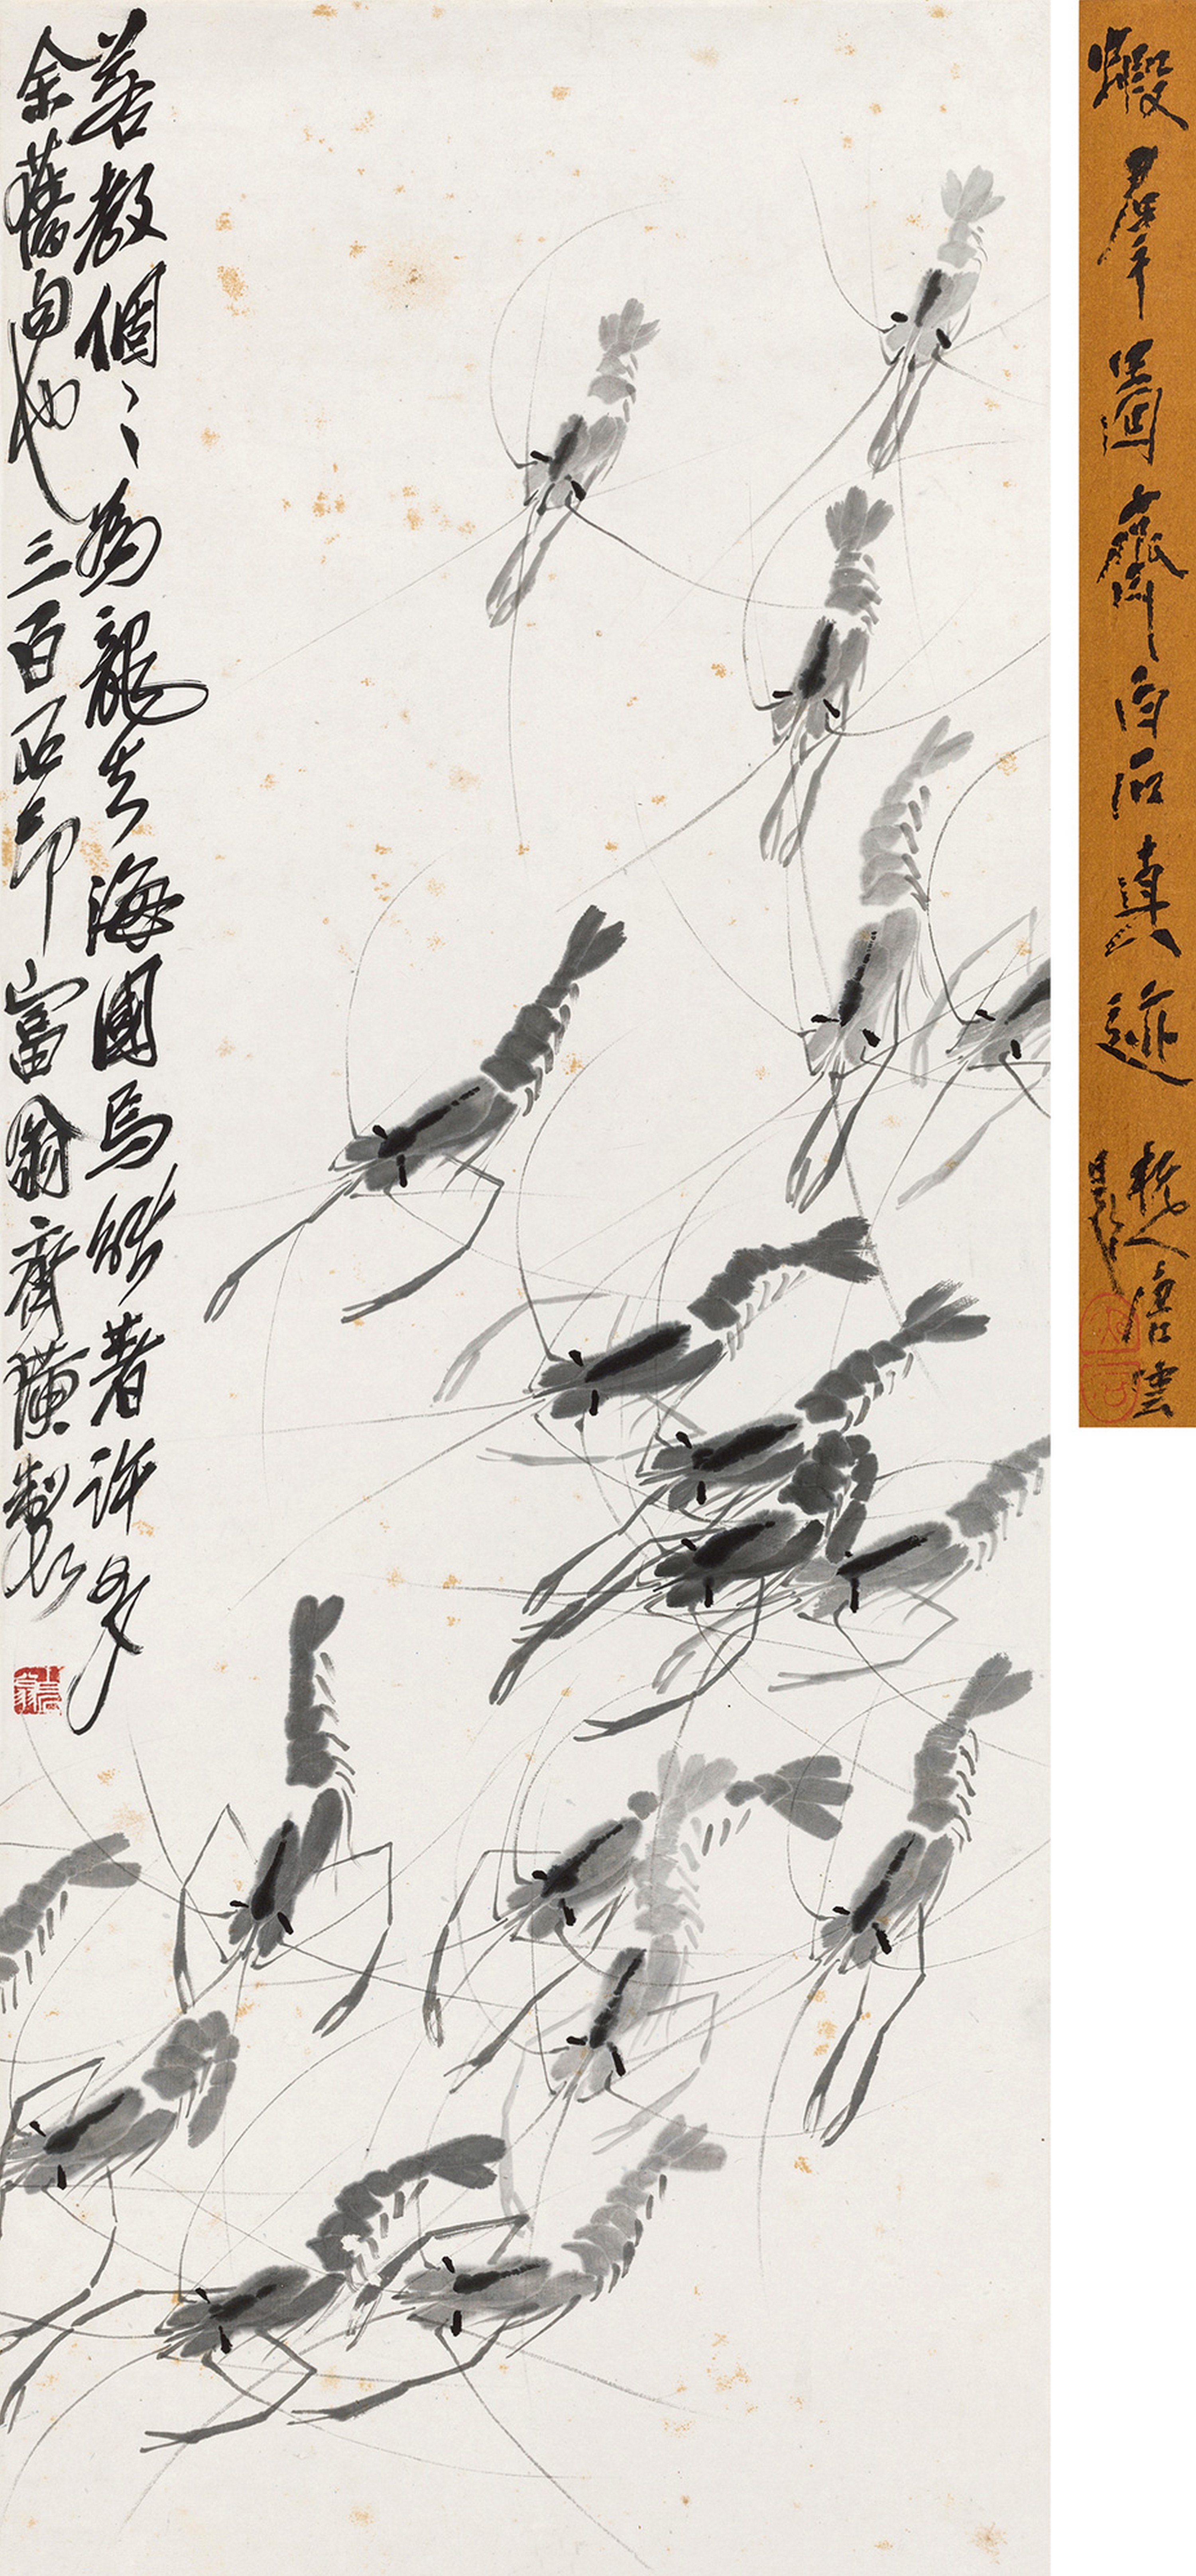 蝦羣圖齊白石真迹
杭人唐雲
題
若教個〻為龍去海國焉能著許多
余舊句也三百石印富翁齊璜製